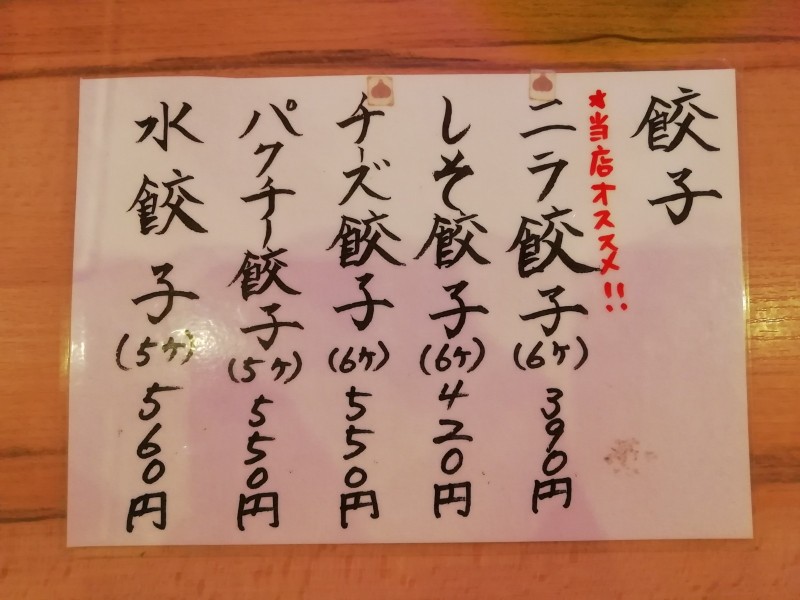 餃子
★当店オススメ!!
ニラ餃子(6ケ)390円
しそ餃子(6ケ)420円
チーズ餃子(6ケ)550円
パクチー餃子(5ケ)550円
水餃子(5ケ)560円